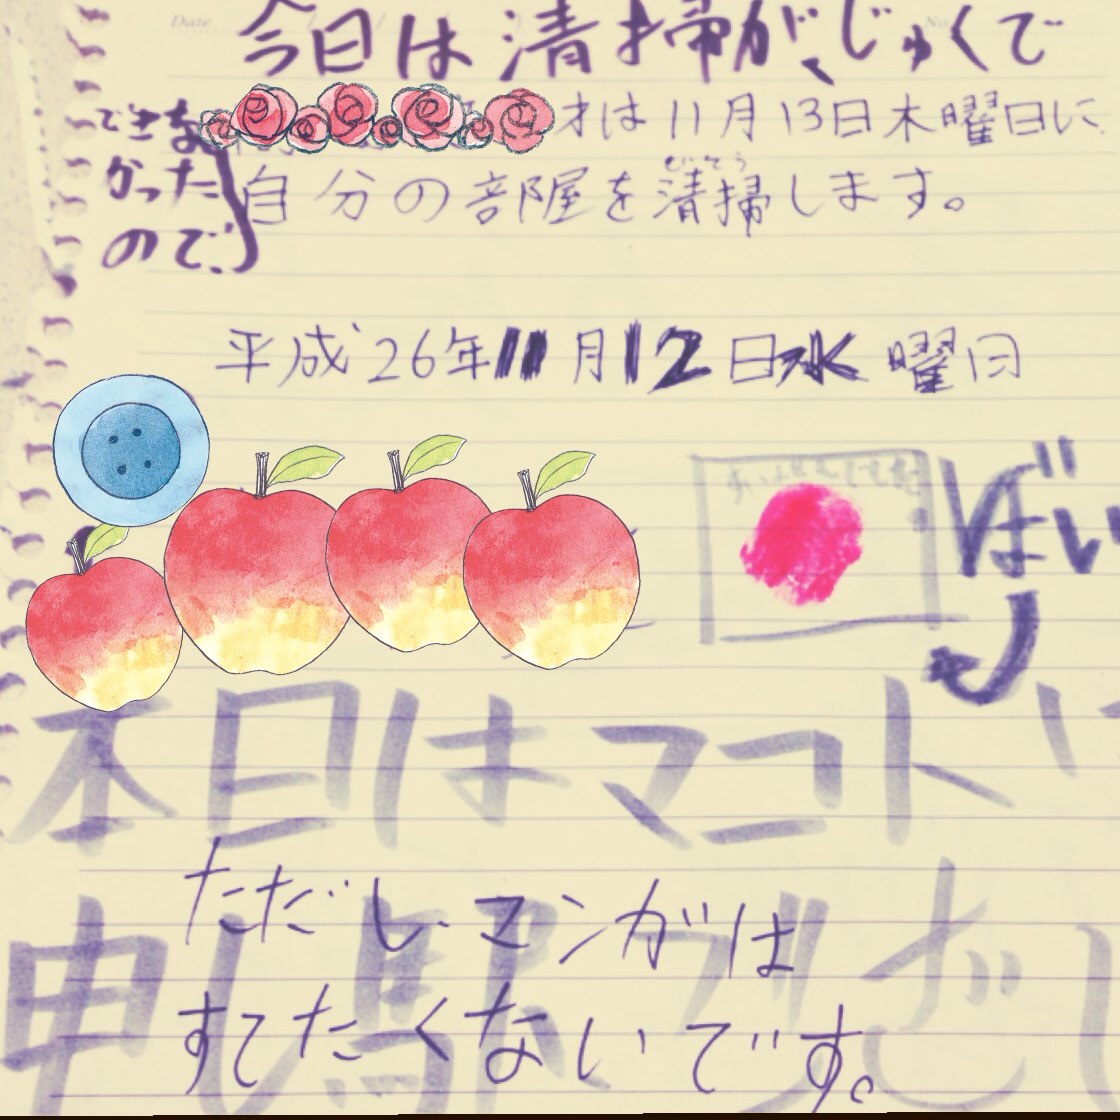 Date No.
今日は清掃が、じゅくで
できな
かった
ので、
才は11月13日木曜日に
せいそう
自分の部屋を清掃します。
平成26年11月12日水曜日
ばい
本日はマコト
ただしマンガは
すてたくないです。
申し